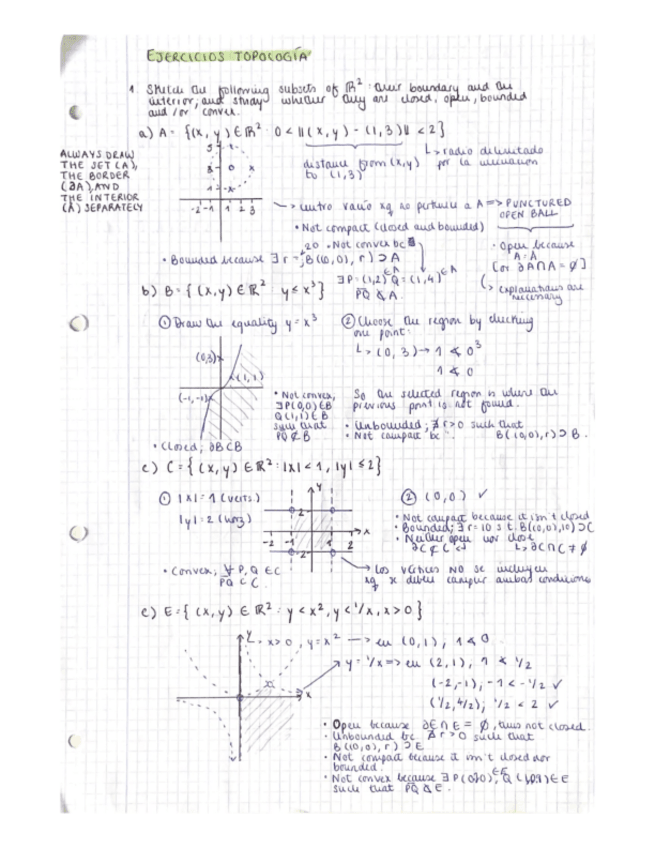 EJERCICIOS TOPOLOGÍA
1. Sketch the following subsets of ℝ² their boundary and the
interior, and study whether they are closed, open, bounded
and/or convex.
a) A = {(x, y) ∈ ℝ² : 0 < ||(x, y) - (1, 3)|| < 2}
ALWAYS DRAW
THE SET (A),
THE BORDER
(∂A), AND
THE INTERIOR
(Å) SEPARATELY
distance from (x, y)
to (1, 3)
↳ radio delimitado
por la inecuación
-2 -1 1 2 3
→ centro vacío xq no pertenece a A => PUNCTURED
OPEN BALL
• Not compact (closed and bounded)
• Bounded because ∃ r = 20, B((0,0), r) ⊃ A
• Not convex bc
∃ P = (1,2) ∈ A Q = (1,4) ∈ A
PQ ⊄ A
• Open because
A = Å
[or ∂A ∩ A = ∅]
↳ explanations are
necessary
b) B = {(x, y) ∈ ℝ² : y ≤ x³}
① Draw the equality y = x³
② Choose the region by checking
one point:
↳ (0, 3) → 1 ≰ 0³
1 ≰ 0
(0,3)
(1, 1)
(-1, -1)
• Not convex,
∃ P(0,0) ∈ B
Q (1,1) ∈ B
such that
PQ ⊄ B
So the selected region is where the
previous point is not found.
• Unbounded; ∄ r > 0 such that
B((0,0), r) ⊃ B.
• Not compact bc
• Closed; ∂B ⊂ B
c) C = {(x, y) ∈ ℝ² : |x| < 1, |y| ≤ 2}
① |x| = 1 (verts.)
|y| = 2 (horz)
② (0,0) ✓
• Not compact because it isn't closed
• Bounded; ∃ r = 10 s.t. B((0,0),10) ⊃ C
• Neither open nor close
∂C ⊄ C ↲ ↳ ∂C ∩ C ≠ ∅
y
2
x
-2 -1 1 2
-2
• Convex; ∀ P, Q ∈ C
PQ ⊂ C
→ Los vértices NO se incluyen
xq x deben cumplir ambas condiciones
e) E = {(x, y) ∈ ℝ² : y < x², y < 1/x, x > 0}
y
↳ x > 0, y = x² → en (0, 1), 1 ≮ 0
y = 1/x => en (2, 1), 1 ≮ 1/2
x
(-2, -1), -1 < -1/2 ✓
(1/2, 1/2); 1/2 < 2 ✓
• Open because ∂E ∩ E = ∅, thus not closed.
• Unbounded bc ∄ r > 0 such that
B((0,0), r) ⊃ E
• Not compact because it isn't closed nor
bounded.
• Not convex because ∃ P ∈ E, Q ∈ E
such that PQ ⊄ E.